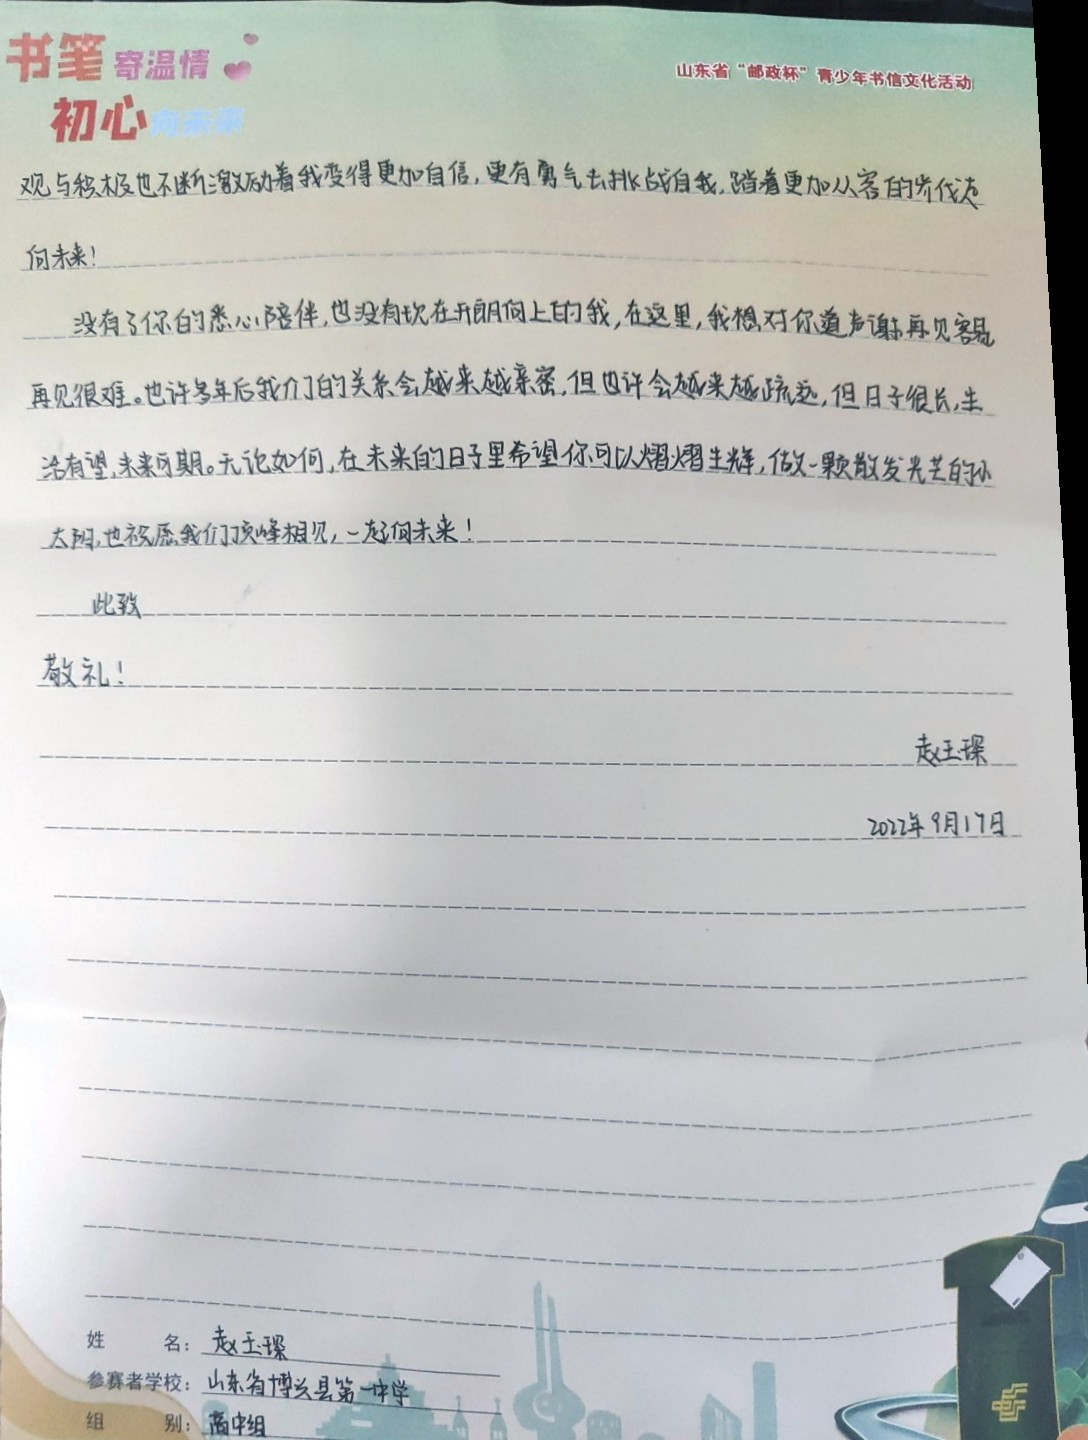 书笔寄温情
初心向未来
山东省“邮政杯”青少年书信文化活动
观与积极也不断激励着我变得更加自信,更有勇气去挑战自我,踏着更加从容的步伐迈
向未来!
没有了你的悉心陪伴,也没有现在开朗向上的我,在这里,我想对你道声谢,再见容易
再见很难。也许多年后我们的关系会越来越亲密,但也许会越来越疏远,但日子很长,生
活有望,未来可期。无论如何,在未来的日子里希望你可以熠熠生辉,做一颗散发光芒的小
太阳,也祝愿我们顶峰相见,一起向未来!
此致
敬礼!
赵玉琛
2022年9月17日
姓 名: 赵玉琛
参赛者学校: 山东省博兴县第一中学
组 别: 高中组